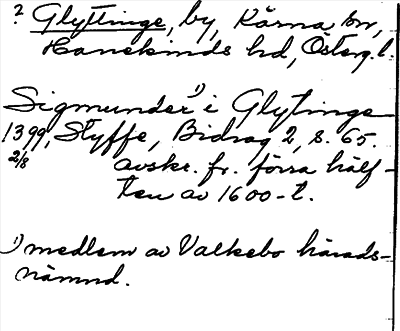 ? Glyttinge, by, Kärna sn,
Hanekinds hd, Österg. l.
Sigmunder¹⁾ i Glytinge
1399, Styffe, Bidrag 2, s. 65.
2/8 avskr. fr. förra hälf-
ten av 1600-t.
¹⁾ medlem av Valkebo härads-
nämnd.